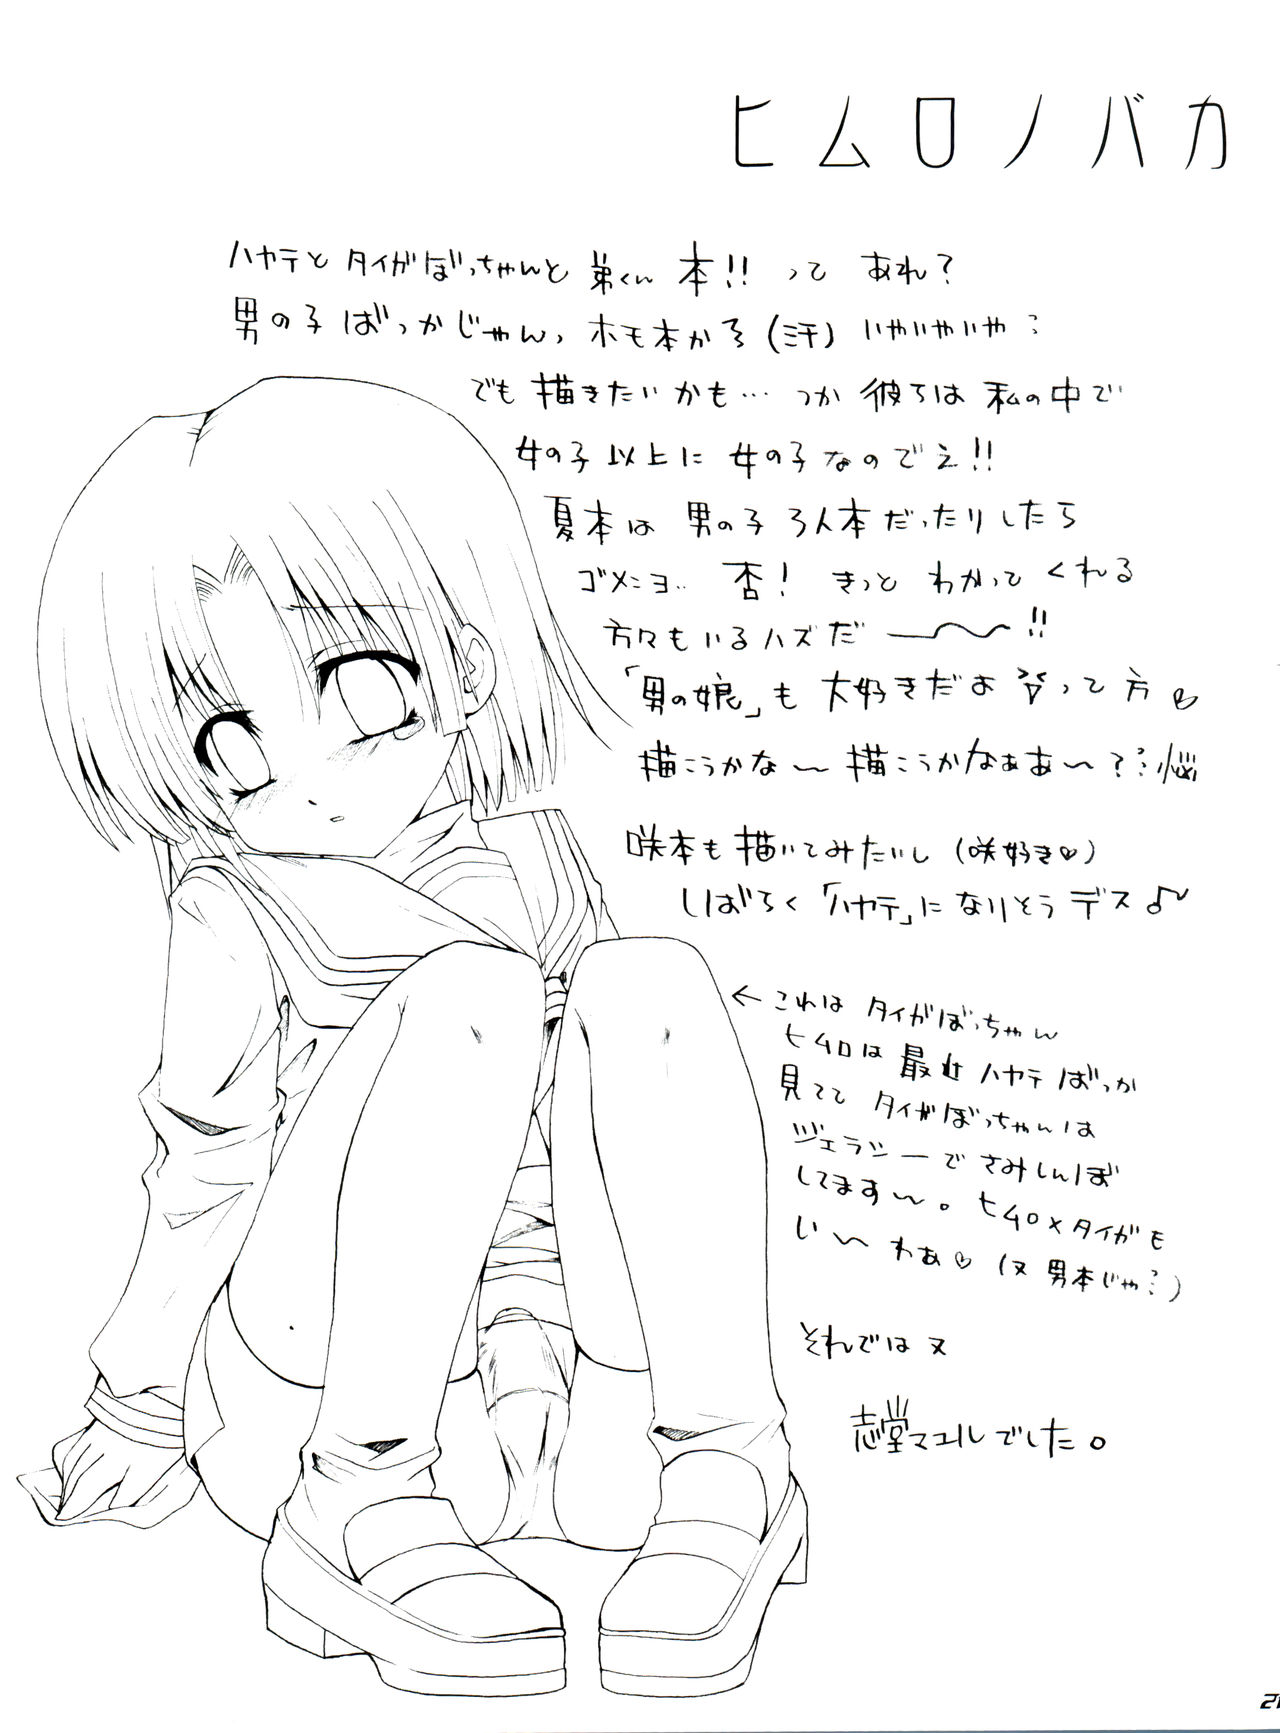 ヒムロノバカ
ハヤテと タイがぼっちゃんと 弟くん 本!! って あれ?
男の子ばっかじゃんっ ホモ本かろ (汗) いやいやいや…
でも 描きたいかも… つか 彼らは 私の中で
女の子以上に 女の子なのでえ!!
夏本は 男の子 3人本だったりしたら
ゴメンヨ… 否! きっと わかって くれる
方々もいるハズだ ーー〜〜 !!
「男の娘」も 大好きだよ って方♡
描こうかな〜 描こうかなぁあ〜?… 悩
咲本も 描いてみたいし (咲好き♡)
しばらく「ハヤテ」に なりそう デス♪
← これは タイがぼっちゃん
ヒムロは 最近 ハヤテ ばっか
見てて タイがぼっちゃんは
ジェラシーで さみしんぼ
してます〜。 ヒムロ×タイガも
い〜 わぁ♡ (ヌ 男本じゃ…)
それでは ヌ
志堂マユルでした。